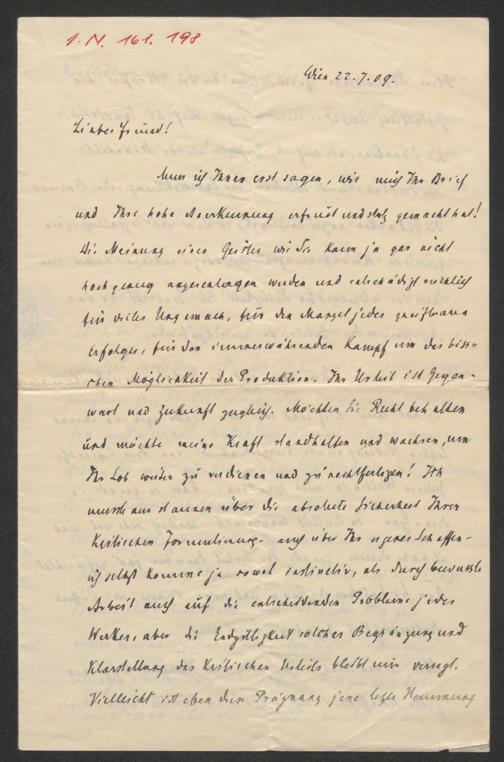 I. N. 161. 198
Wien 22.7.09.
Lieber Freund!
Muss ich Ihnen erst sagen, wie mich Ihr Brief
und Ihre hohe Anerkennung erfreut und stolz gemacht hat!
Die Meinung eines Geistes wie Sie kann ja gar nicht
hoch genug angeschlagen werden und entschädigt reichlich
für vieles Ungemach, für den Mangel jedes greifbaren
Erfolges, für den immerwährenden Kampf um das biss-
chen Möglichkeit der Produktion. Ihr Urteil ist Gegen-
wart und Zukunft zugleich. Möchten Sie Recht behalten
und möchte meine Kraft standhalten und wachsen, um
Ihr Lob weiter zu verdienen und zu rechtfertigen! Ich
musste staunen über die absolute Sicherheit Ihrer
kritischen Formulierung auch über Ihr eigenes Schaffen -
ich selbst komme ja sowol instinctiv, als durch bewusste
Arbeit auch auf die entscheidenden Probleme jedes
Werkes, aber die Endgültigkeit solcher Begränzung und
Klarstellung des kritischen Urteils bleibt mir versagt.
Vielleicht ist eben diese Prägnanz jene letzte Hemmung